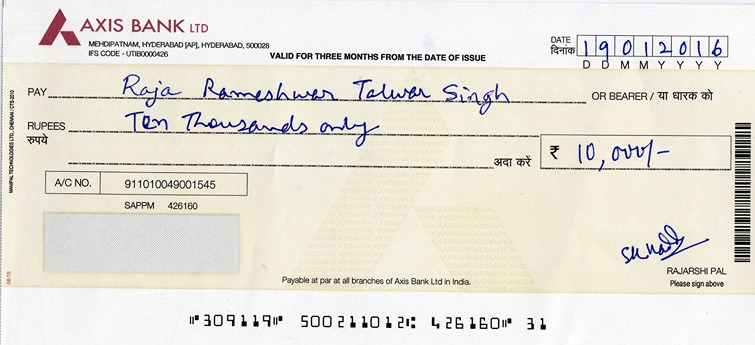 AXIS BANK LTD
MEHDIPATNAM, HYDERABAD [AP], HYDERABAD, 500028
IFS CODE - UTIB0000426
VALID FOR THREE MONTHS FROM THE DATE OF ISSUE
DATE
दिनांक
19012016
D D M M Y Y Y Y
PAY Raja Rameshwar Talwar Singh OR BEARER / या धारक को
RUPEES Ten Thousands only
रुपये
अदा करें ₹ 10,000/-
A/C NO. 911010049001545
SAPPM 426160
RAJARSHI PAL
Please sign above
Payable at par at all branches of Axis Bank Ltd in India.
MANIPAL TECHNOLOGIES LTD, CHENNAI / CTS-2010
08-15
⑈309119⑈ 500211012⑆ 426160⑈ 31